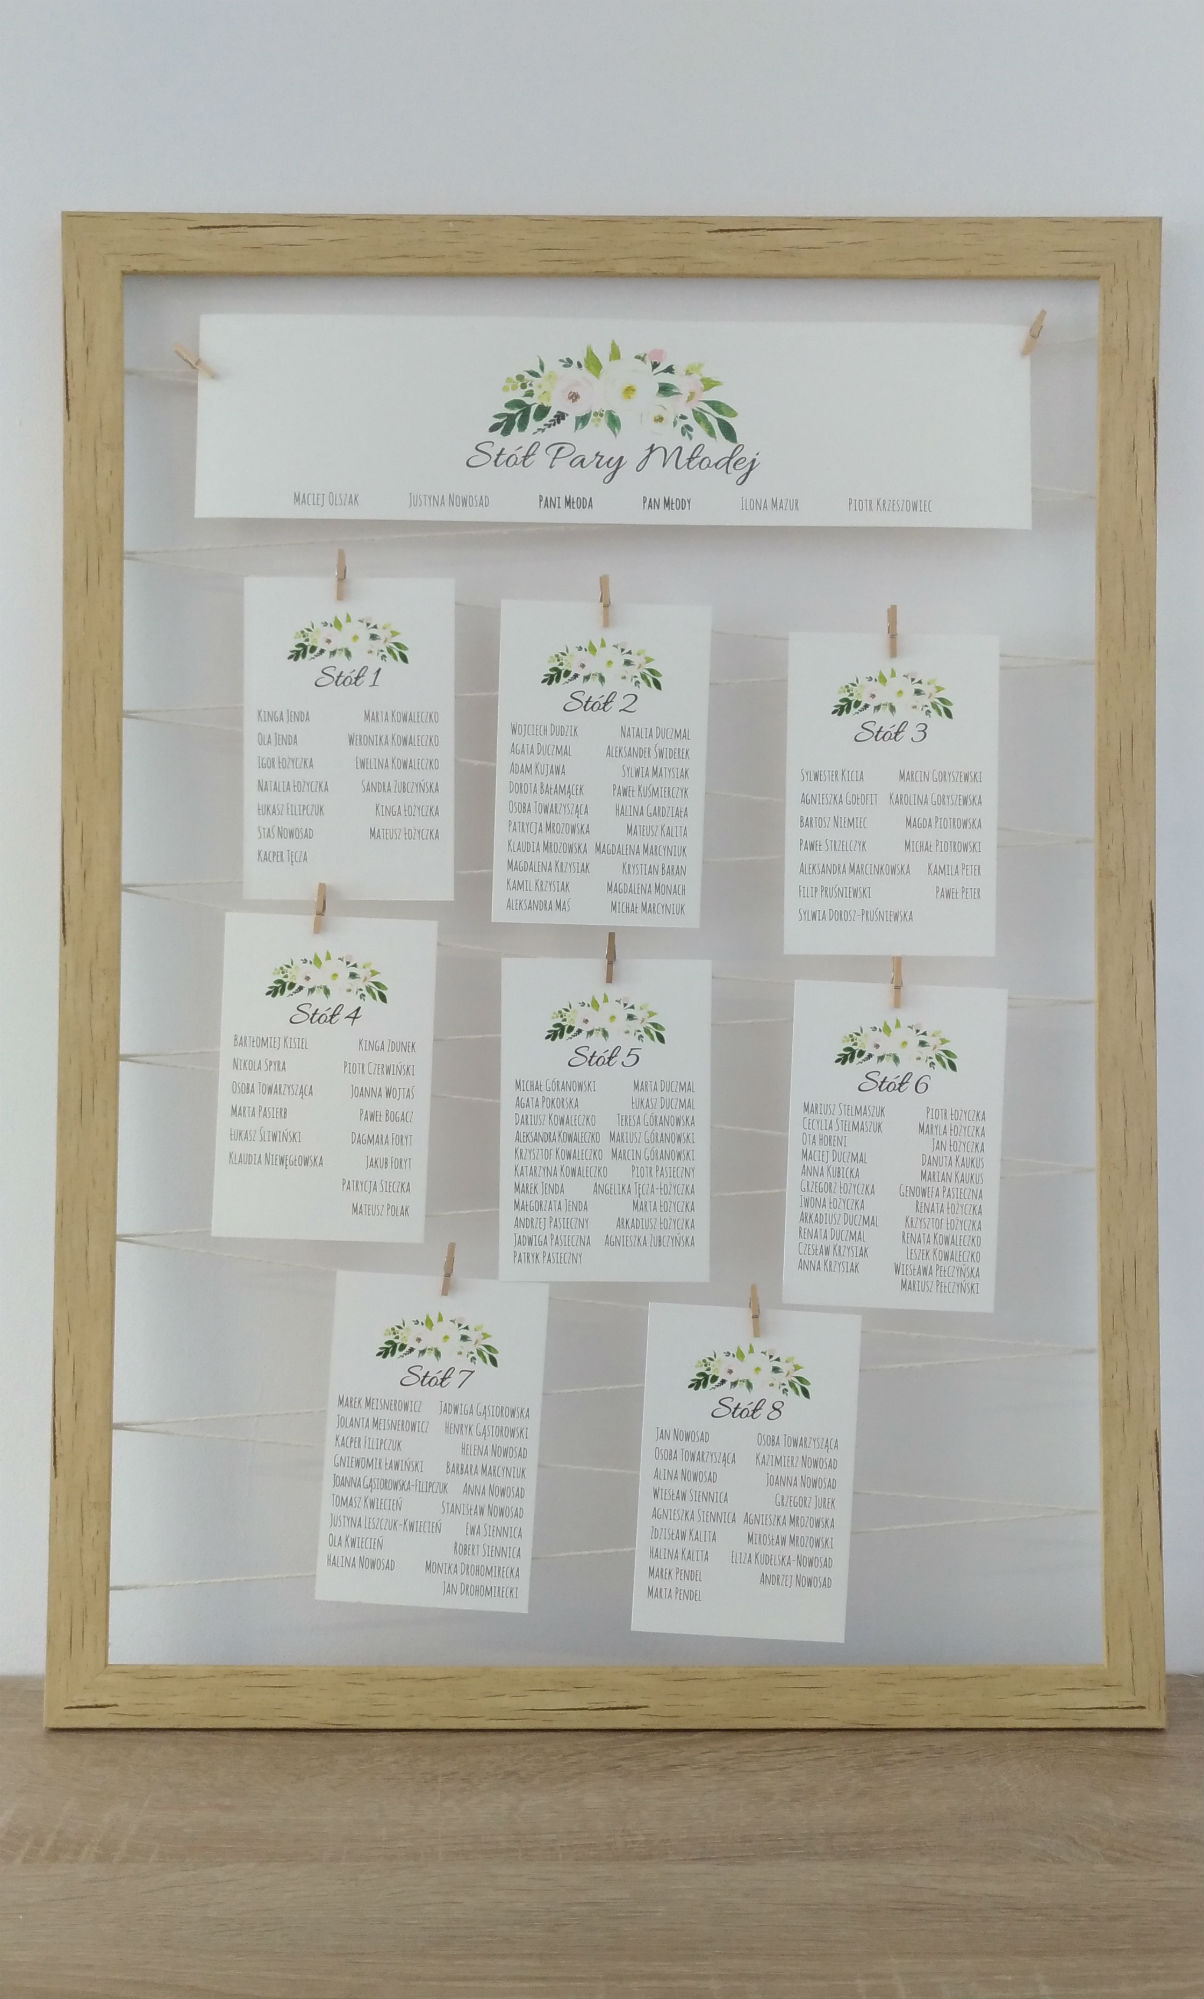 Stół Pary Młodej
Maciej Olszak Justyna Nowosad Pani Młoda Pan Młody Ilona Mazur Piotr Krzeszowiec
Stół 1
Kinga Jenda Marta Kowaleczko
Ola Jenda Weronika Kowaleczko
Igor Łożyczka Ewelina Kowaleczko
Natalia Łożyczka Sandra Żubczyńska
Łukasz Filipczuk Kinga Łożyczka
Staś Nowosad Mateusz Łożyczka
Kacper Tęcza
Stół 2
Wojciech Dudzik Natalia Duczmal
Agata Duczmal Aleksander Świderek
Adam Kujawa Sylwia Matysiak
Dorota Bałamącek Paweł Kuśmierczyk
Osoba Towarzysząca Halina Gardziała
Patrycja Mrozowska Mateusz Kalita
Klaudia Mrozowska Magdalena Marcyniuk
Magdalena Krzysiak Krystian Baran
Kamil Krzysiak Magdalena Monach
Aleksandra Maś Michał Marcyniuk
Stół 3
Sylwester Kicia Marcin Goryszewski
Agnieszka Gołofit Karolina Goryszewska
Bartosz Niemiec Magda Piotrowska
Paweł Strzelczyk Michał Piotrowski
Aleksandra Marcinkowska Kamila Peter
Filip Pruśniewski Paweł Peter
Sylwia Dorosz-Pruśniewska
Stół 4
Bartłomiej Kisiel Kinga Zdunek
Nikola Spyra Piotr Czerwiński
Osoba Towarzysząca Joanna Wojtaś
Marta Pasierb Paweł Bogacz
Łukasz Śliwiński Dagmara Foryt
Klaudia Niewęgłowska Jakub Foryt
Patrycja Sieczka
Mateusz Polak
Stół 5
Michał Góranowski Marta Duczmal
Agata Pokorska Łukasz Duczmal
Dariusz Kowaleczko Teresa Góranowska
Aleksandra Kowaleczko Mariusz Góranowski
Krzysztof Kowaleczko Marcin Góranowski
Katarzyna Kowaleczko Piotr Pasieczny
Marek Jenda Angelika Tęcza-Łożyczka
Małgorzata Jenda Marta Łożyczka
Andrzej Pasieczny Arkadiusz Łożyczka
Jadwiga Pasieczna Agnieszka Żubczyńska
Patryk Pasieczny
Stół 6
Mariusz Stelmaszuk Piotr Łożyczka
Cecylia Stelmaszuk Maryla Łożyczka
Ota Horeni Jan Łożyczka
Maciej Duczmal Danuta Kaukus
Anna Kubicka Marian Kaukus
Grzegorz Łożyczka Genowefa Pasieczna
Iwona Łożyczka Renata Łożyczka
Arkadiusz Duczmal Krzysztof Łożyczka
Renata Duczmal Renata Kowaleczko
Czesław Krzysiak Leszek Kowaleczko
Anna Krzysiak Wiesława Pełczyńska
Mariusz Pełczyński
Stół 7
Marek Meisnerowicz Jadwiga Gąsiorowska
Jolanta Meisnerowicz Henryk Gąsiorowski
Kacper Filipczuk Helena Nowosad
Gniewomir Ławiński Barbara Marcyniuk
Joanna Gąsiorowska-Filipczuk Anna Nowosad
Tomasz Kwiecień Stanisław Nowosad
Justyna Leszczuk-Kwiecień Ewa Siennica
Ola Kwiecień Robert Siennica
Halina Nowosad Monika Drohomirecka
Jan Drohomirecki
Stół 8
Jan Nowosad Osoba Towarzysząca
Osoba Towarzysząca Kazimierz Nowosad
Alina Nowosad Joanna Nowosad
Wiesław Siennica Grzegorz Jurek
Agnieszka Siennica Agnieszka Mrozowska
Zdzisław Kalita Mirosław Mrozowski
Halina Kalita Eliza Kudelska-Nowosad
Marek Pendel Andrzej Nowosad
Marta Pendel